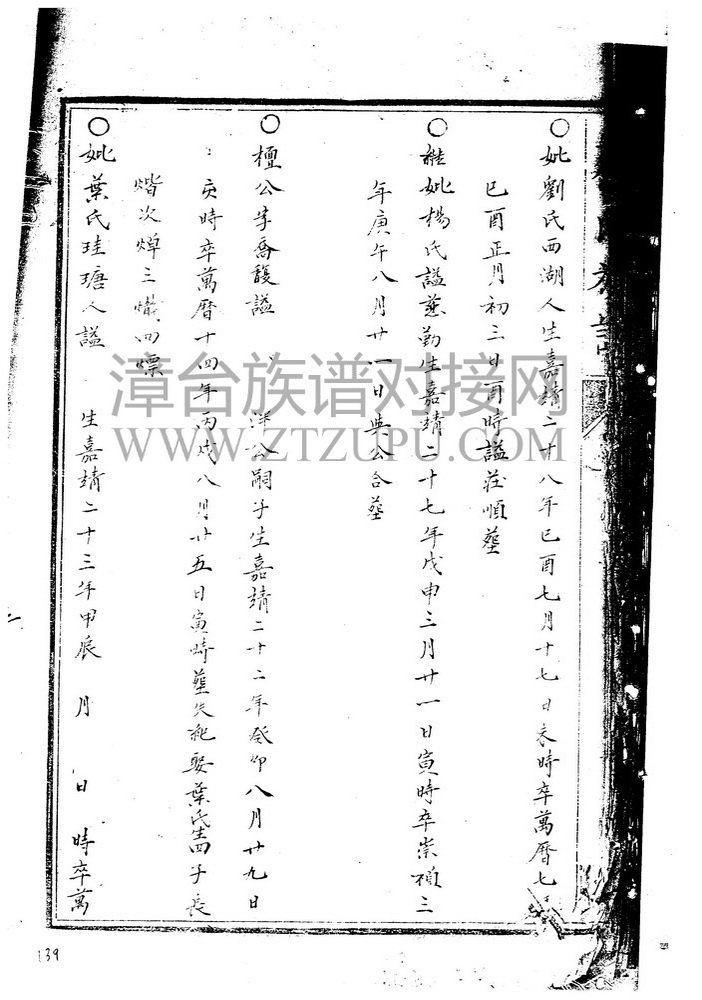 ○妣劉氏西湖人生嘉靖二十八年已酉七月十七日未時卒萬曆七
已酉正月初三日酉時謚莊順塟
○継妣楊氏謚慈勤生嘉靖二十七年戊申三月廿一日寅時卒崇禎三
年庚午八月廿一日與公合塟
○檀公字喬馥謚 洋公嗣子生嘉靖二十二年癸卯八月廿九日
亥時卒萬曆十四年丙戌八月廿五日寅時塟失紀娶葉氏生四子長
次焯三 四熛
○妣葉氏珪瑭人謚 生嘉靖二十三年甲辰 月 日 時卒萬
漳台族谱对接网
WWW.ZTZUPU.COM
139